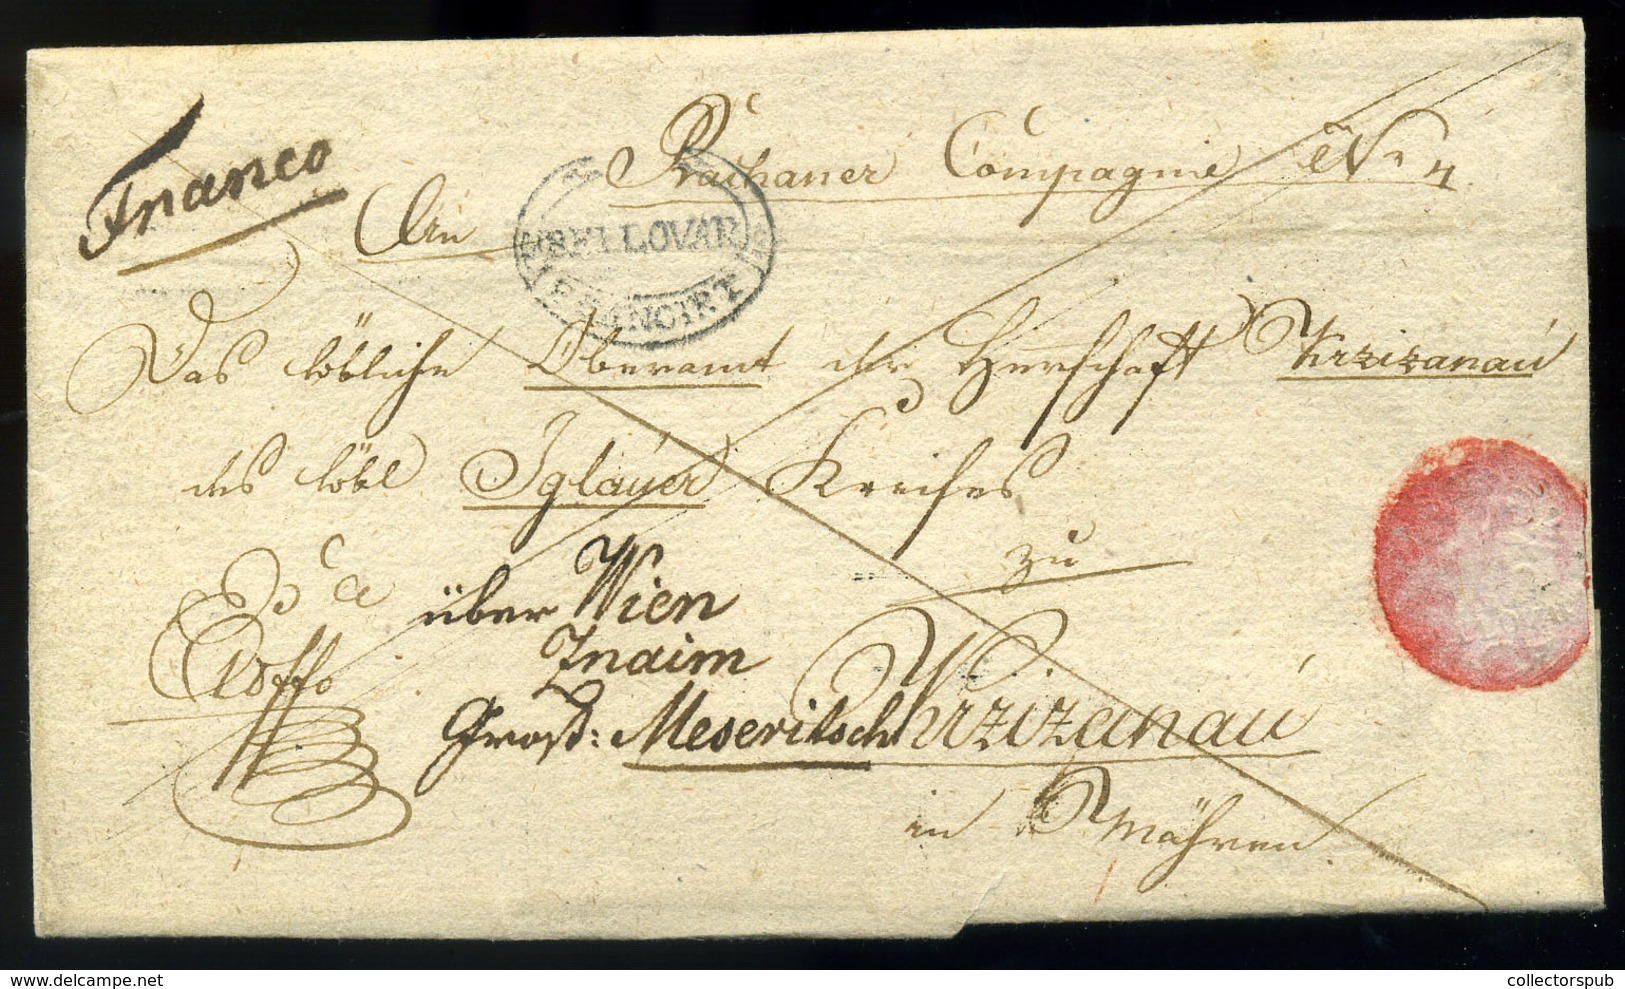 Franco
Rachaner Compagnie Nr 4
An
BELLOVAR
FRANCIRT
Das löbliche Oberamt der Herrschaft Krzizanau
des löbl Iglauer Kreises
zu
über Wien
Znaim
Groß: Meseritsch Krzizanau
in Mähren
collectorspub